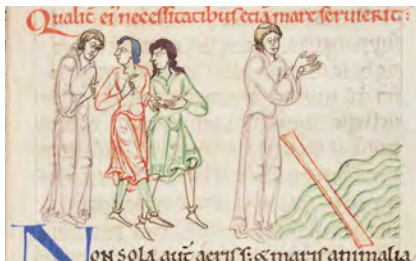 Qualit̄ ei necessitatibus etiā mare servierit:
NON SOLA aut̄ aeris s; & maris animalia